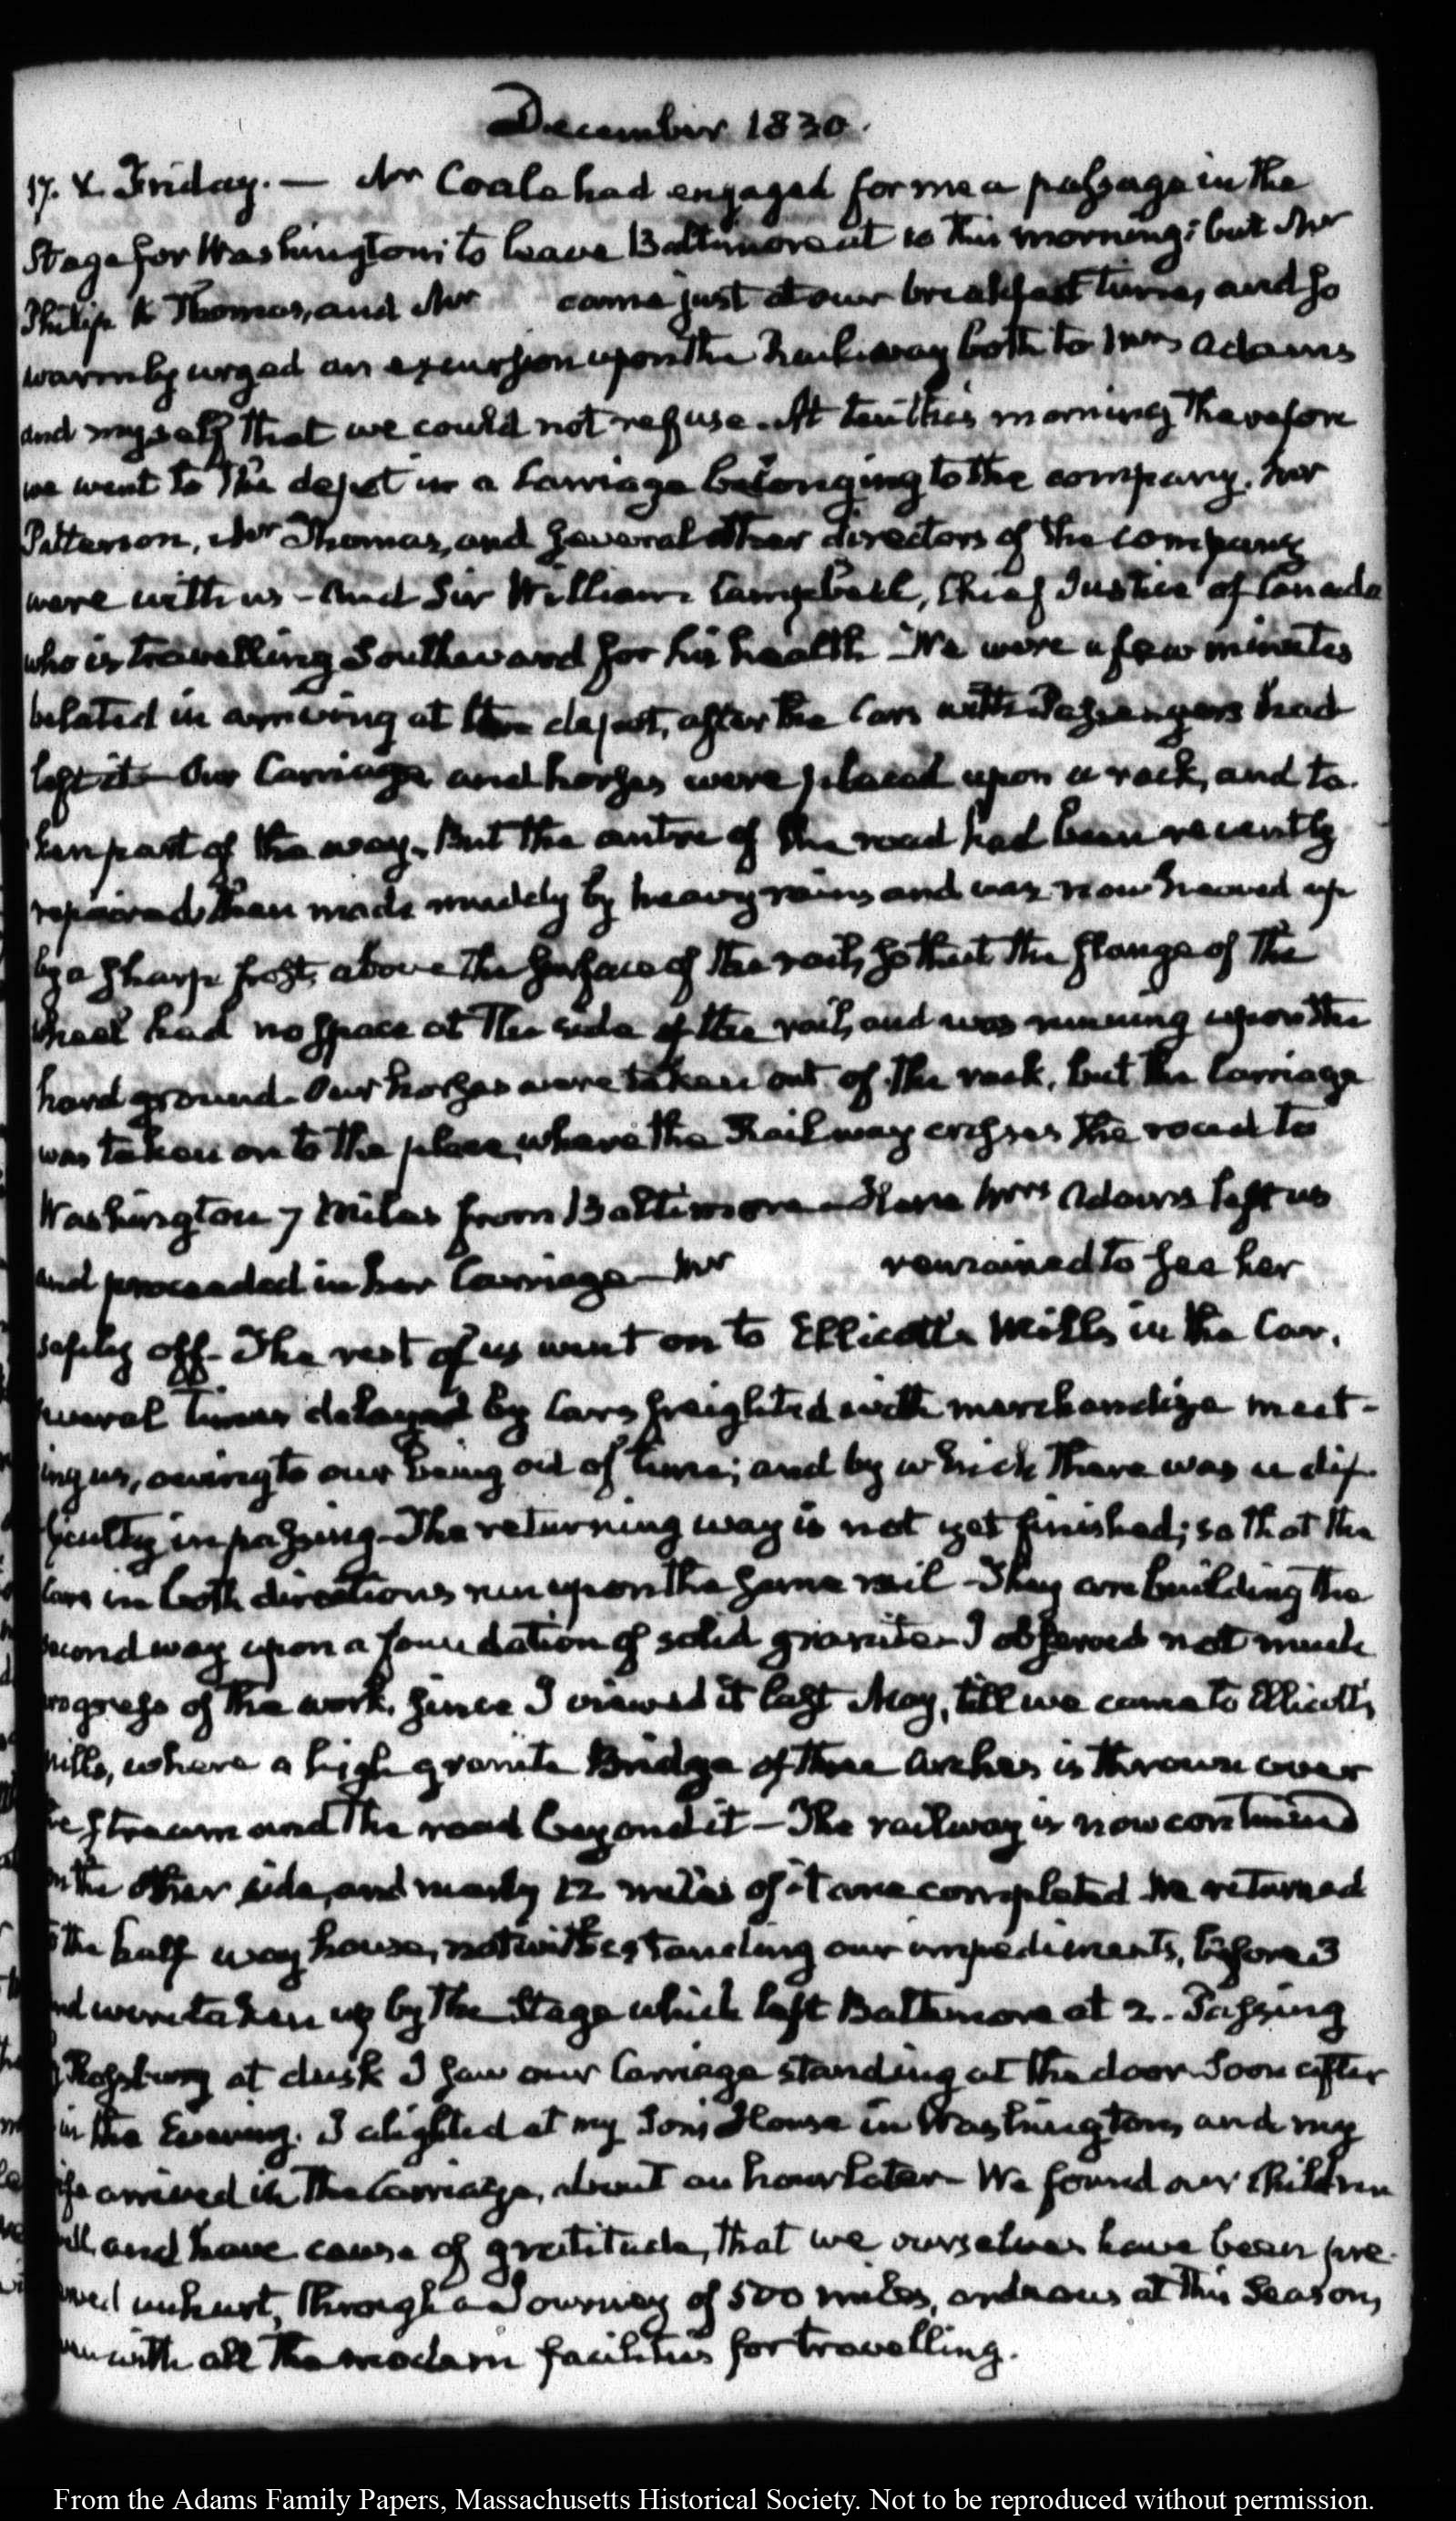 December 1830.
17. Friday. — Mr Coale had engaged for me a passage in the
Stage for Washington; to leave Baltimore at 10 this morning: but Mr
Philip E Thomas, and Mr came just at our breakfast time, and so
warmly urged an excursion upon the Railway both to Mrs Adams
and myself that we could not refuse. At ten this morning therefore
we went to the depot in a Carriage belonging to the company. Mr
Patterson, Mr Thomas, and several other directors of the company
were with us - And Sir William Campbell, Chief Justice of Canada
who is travelling Southward for his health - We were a few minutes
belated in arriving at the depot, after the Cars with Passengers had
left it - Our Carriage and horses were placed upon a rack, and ta-
ken part of the way. But the centre of the road had been recently
repaired, then made muddy by heavy rains and was now heaved up
by a sharp frost, above the surface of the rail, so that the flange of the
wheel had no space at the side of the rail, and was running upon the
hard ground. Our horses were taken out of the rack, but the Carriage
was taken on to the place, where the Railway crosses the road to
Washington 7 miles from Baltimore - Here Mrs Adams left us
and proceeded in her Carriage - Mr remained to see her
safely off - The rest of us went on to Ellicott's Mills in the Car,
several times delayed by Cars freighted with merchandize meet-
ing us, owing to our being out of time; and by which there was a dif-
ficulty in passing - The returning way is not yet finished; so that the
Cars in both directions run upon the same rail - They are building the
second way upon a foundation of solid granite - I observed not much
progress of the work, since I viewed it last May, till we came to Ellicott's
mills, where a high granite Bridge of three arches is thrown over
the stream and the road beyond it - The railway is now continued
on the other side, and nearly 12 miles of it are completed. We returned
to the half way house, notwithstanding our impediments, before 3
and were taken up by the Stage which left Baltimore at 2. Passing
Rossburg at dusk I saw our Carriage standing at the door. Soon after
in the Evening. I alighted at my Son's House in Washington, and my
wife arrived in the Carriage, about an hour later - We found our children
well, and have cause of gratitude, that we ourselves have been pre-
served unhurt, through a Journey of 500 miles, arduous at this Season,
even with all the modern facilities for travelling.
From the Adams Family Papers, Massachusetts Historical Society. Not to be reproduced without permission.